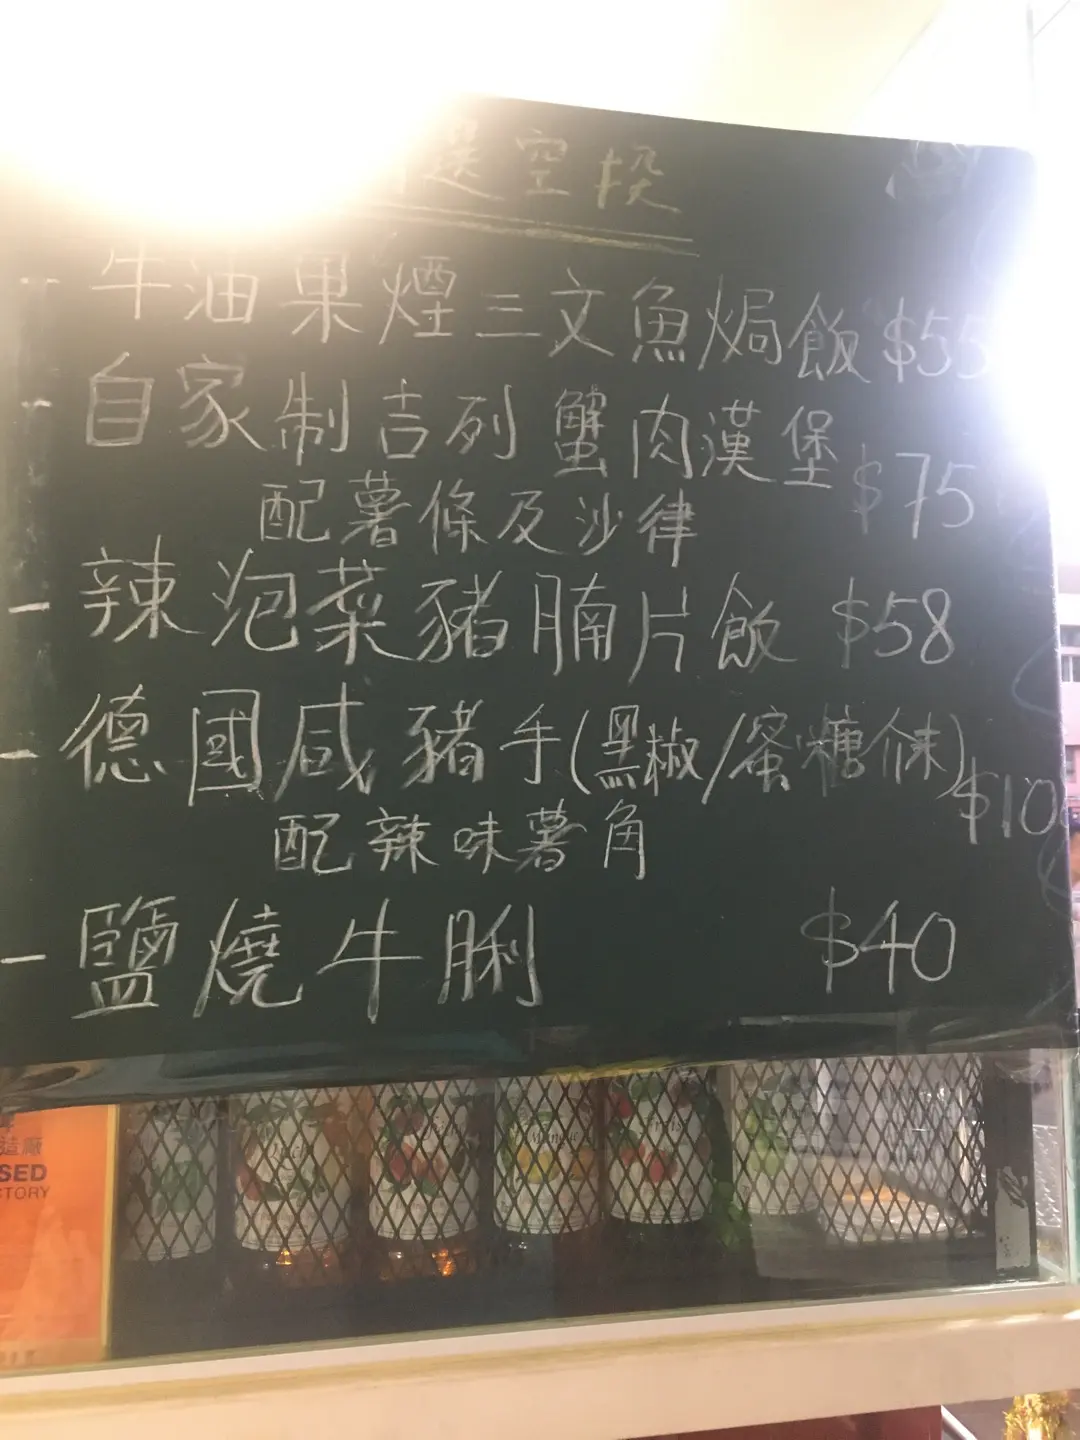 選空投
- 牛油果煙三文魚焗飯 $55
- 自家制吉列蟹肉漢堡
配薯條及沙律 $75
- 辣泡菜豬腩片飯 $58
- 德國咸豬手(黑椒/蜜糖介辣)
$10
配辣味薯角
- 鹽燒牛脷 $40
造廠
SED
CTORY